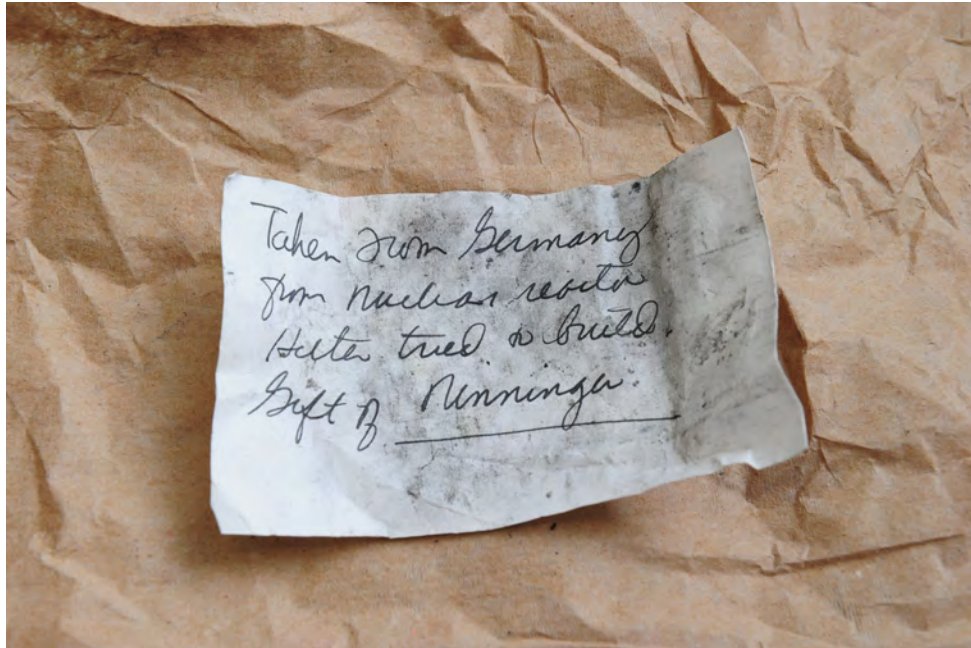 Taken from Germany
from nuclear reactor
Hitler tried to build.
Gift of Ninninger.